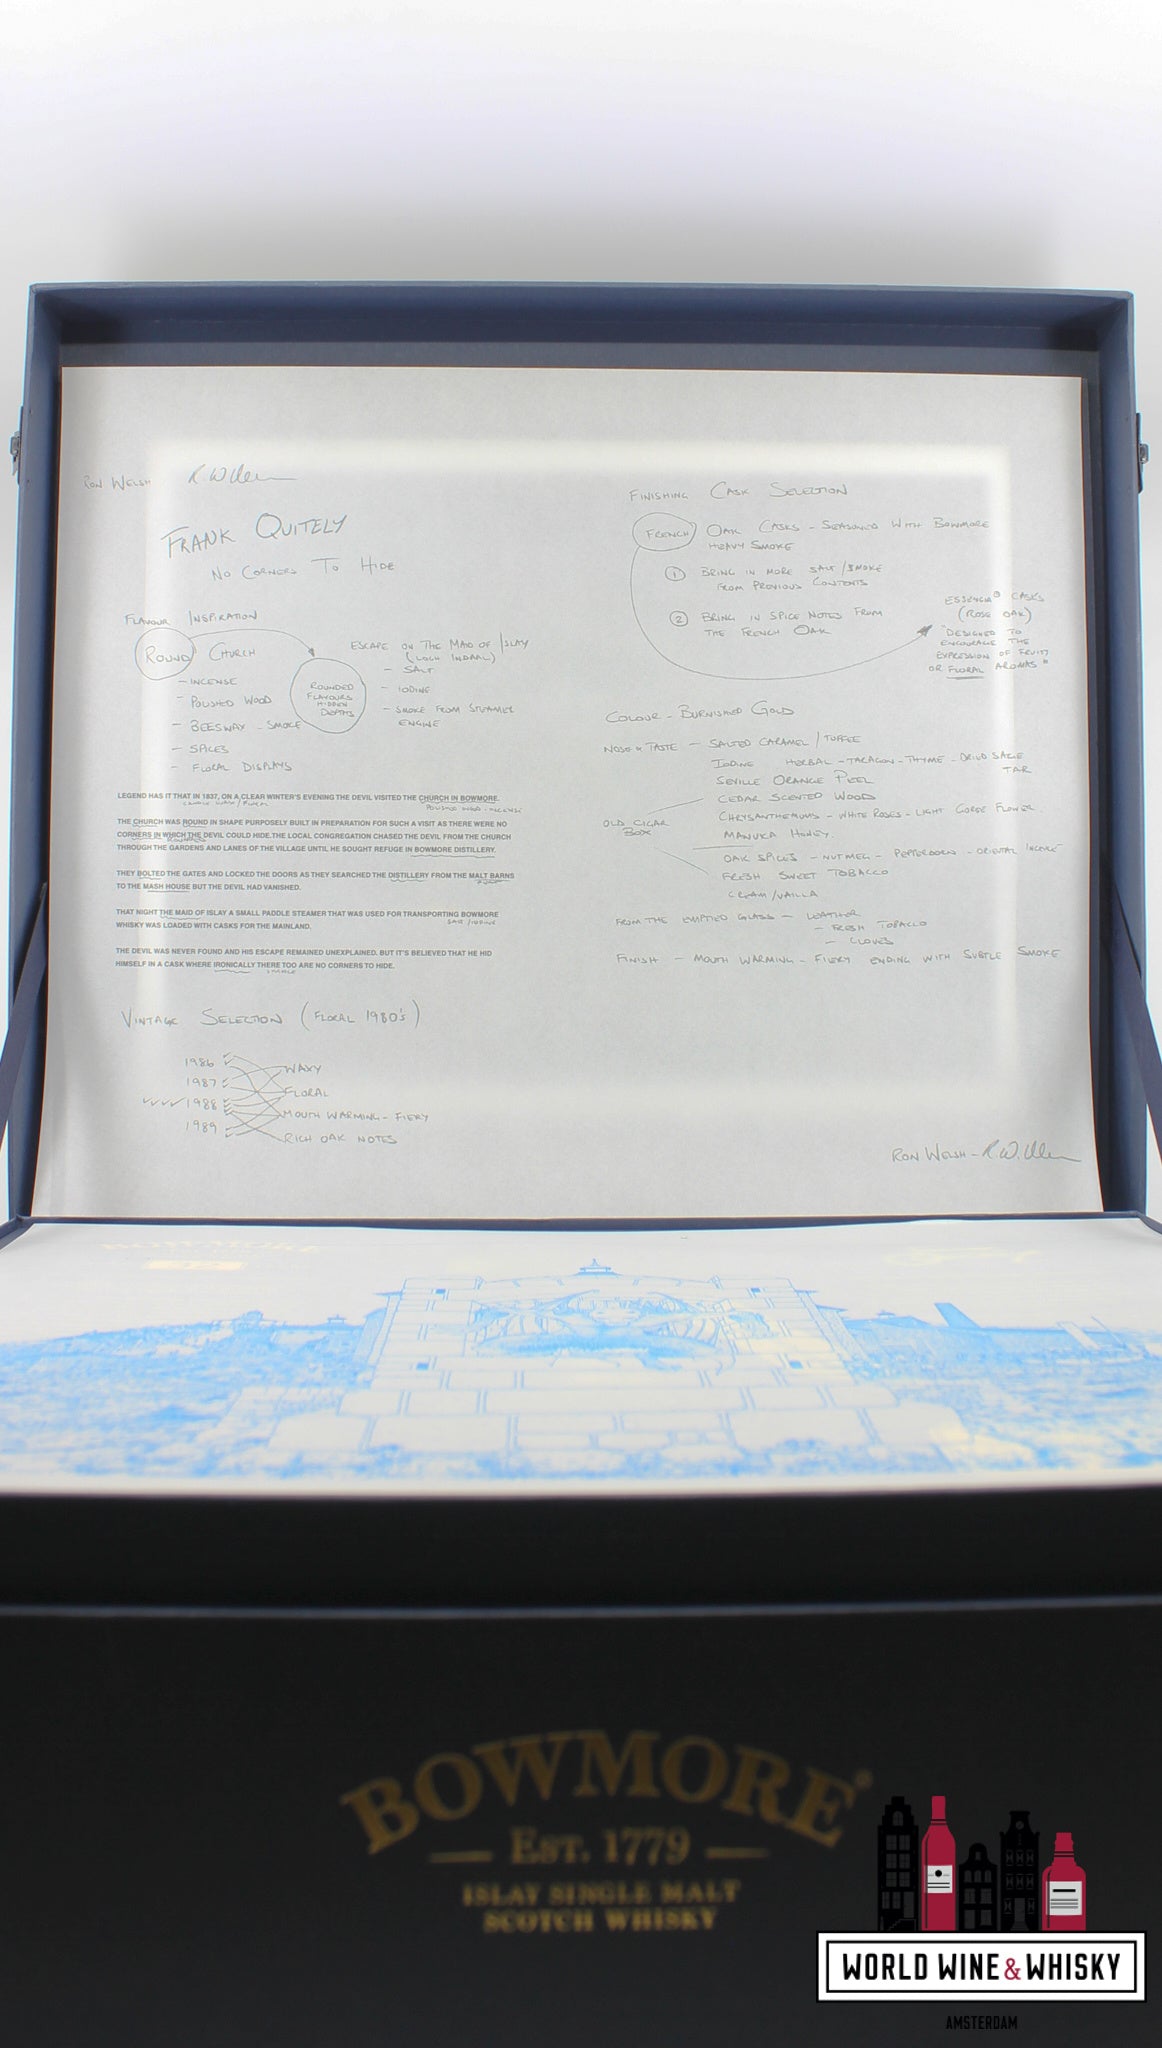 RON WELSH
FRANK QUITELY
NO CORNERS TO HIDE
FLAVOUR INSPIRATION
ROUND CHURCH
- INCENSE
- POLISHED WOOD
- BEESWAX - SMOKE
- SPICES
- FLORAL DISPLAYS
ROUNDED
FLAVOURS
HIDDEN
DEPTHS
ESCAPE ON THE MAID OF ISLAY
(LOCH INDAAL)
- SALT
- IODINE
- SMOKE FROM STEAMER
ENGINE
LEGEND HAS IT THAT IN 1837, ON A CLEAR WINTER'S EVENING THE DEVIL VISITED THE CHURCH IN BOWMORE.
CANDLE WAX / FLORAL
POLISHED WOOD - INCENSE
THE CHURCH WAS ROUND IN SHAPE PURPOSELY BUILT IN PREPARATION FOR SUCH A VISIT AS THERE WERE NO
CORNERS IN WHICH THE DEVIL COULD HIDE.THE LOCAL CONGREGATION CHASED THE DEVIL FROM THE CHURCH
THROUGH THE GARDENS AND LANES OF THE VILLAGE UNTIL HE SOUGHT REFUGE IN BOWMORE DISTILLERY.
THEY BOLTED THE GATES AND LOCKED THE DOORS AS THEY SEARCHED THE DISTILLERY FROM THE MALT BARNS
TO THE MASH HOUSE BUT THE DEVIL HAD VANISHED.
THAT NIGHT THE MAID OF ISLAY A SMALL PADDLE STEAMER THAT WAS USED FOR TRANSPORTING BOWMORE
WHISKY WAS LOADED WITH CASKS FOR THE MAINLAND.
SALT / IODINE
THE DEVIL WAS NEVER FOUND AND HIS ESCAPE REMAINED UNEXPLAINED. BUT IT'S BELIEVED THAT HE HID
HIMSELF IN A CASK WHERE IRONICALLY THERE TOO ARE NO CORNERS TO HIDE.
VINTAGE SELECTION (FLORAL 1980's)
1986
1987
1988
1989
WAXY
FLORAL
MOUTH WARMING - FIERY
RICH OAK NOTES
FINISHING CASK SELECTION
FRENCH OAK CASKS - SEASONED WITH BOWMORE
HEAVY SMOKE
1 BRING IN MORE SALT / SMOKE
FROM PREVIOUS CONTENTS
2 BRING IN SPICE NOTES FROM
THE FRENCH OAK
ESSENCIA® CASKS
(ROSE OAK)
"DESIGNED TO
ENCOURAGE THE
EXPRESSION OF FRUITY
OR FLORAL AROMAS"
COLOUR - BURNISHED GOLD
NOSE & TASTE - SALTED CARAMEL / TOFFEE
IODINE HERBAL - TARAGON - THYME - DRIED SAGE
TAR
SEVILLE ORANGE PEEL
CEDAR SCENTED WOOD
CHRYSANTHEMUMS - WHITE ROSES - LIGHT GORSE FLOWER
OLD CIGAR
BOX
MANUKA HONEY.
OAK SPICES - NUTMEG - PEPPERCORN - ORIENTAL INCENSE
FRESH SWEET TOBACCO
CREAM/VAILLA
FROM THE EMPTIED GLASS - LEATHER
- FRESH TOBACCO
- CLOVES
FINISH - MOUTH WARMING - FIERY ENDING WITH SUBTLE SMOKE
RON WELSH -
BOWMORE
BOWMORE®
EST. 1779
ISLAY SINGLE MALT
SCOTCH WHISKY
WORLD WINE & WHISKY
AMSTERDAM